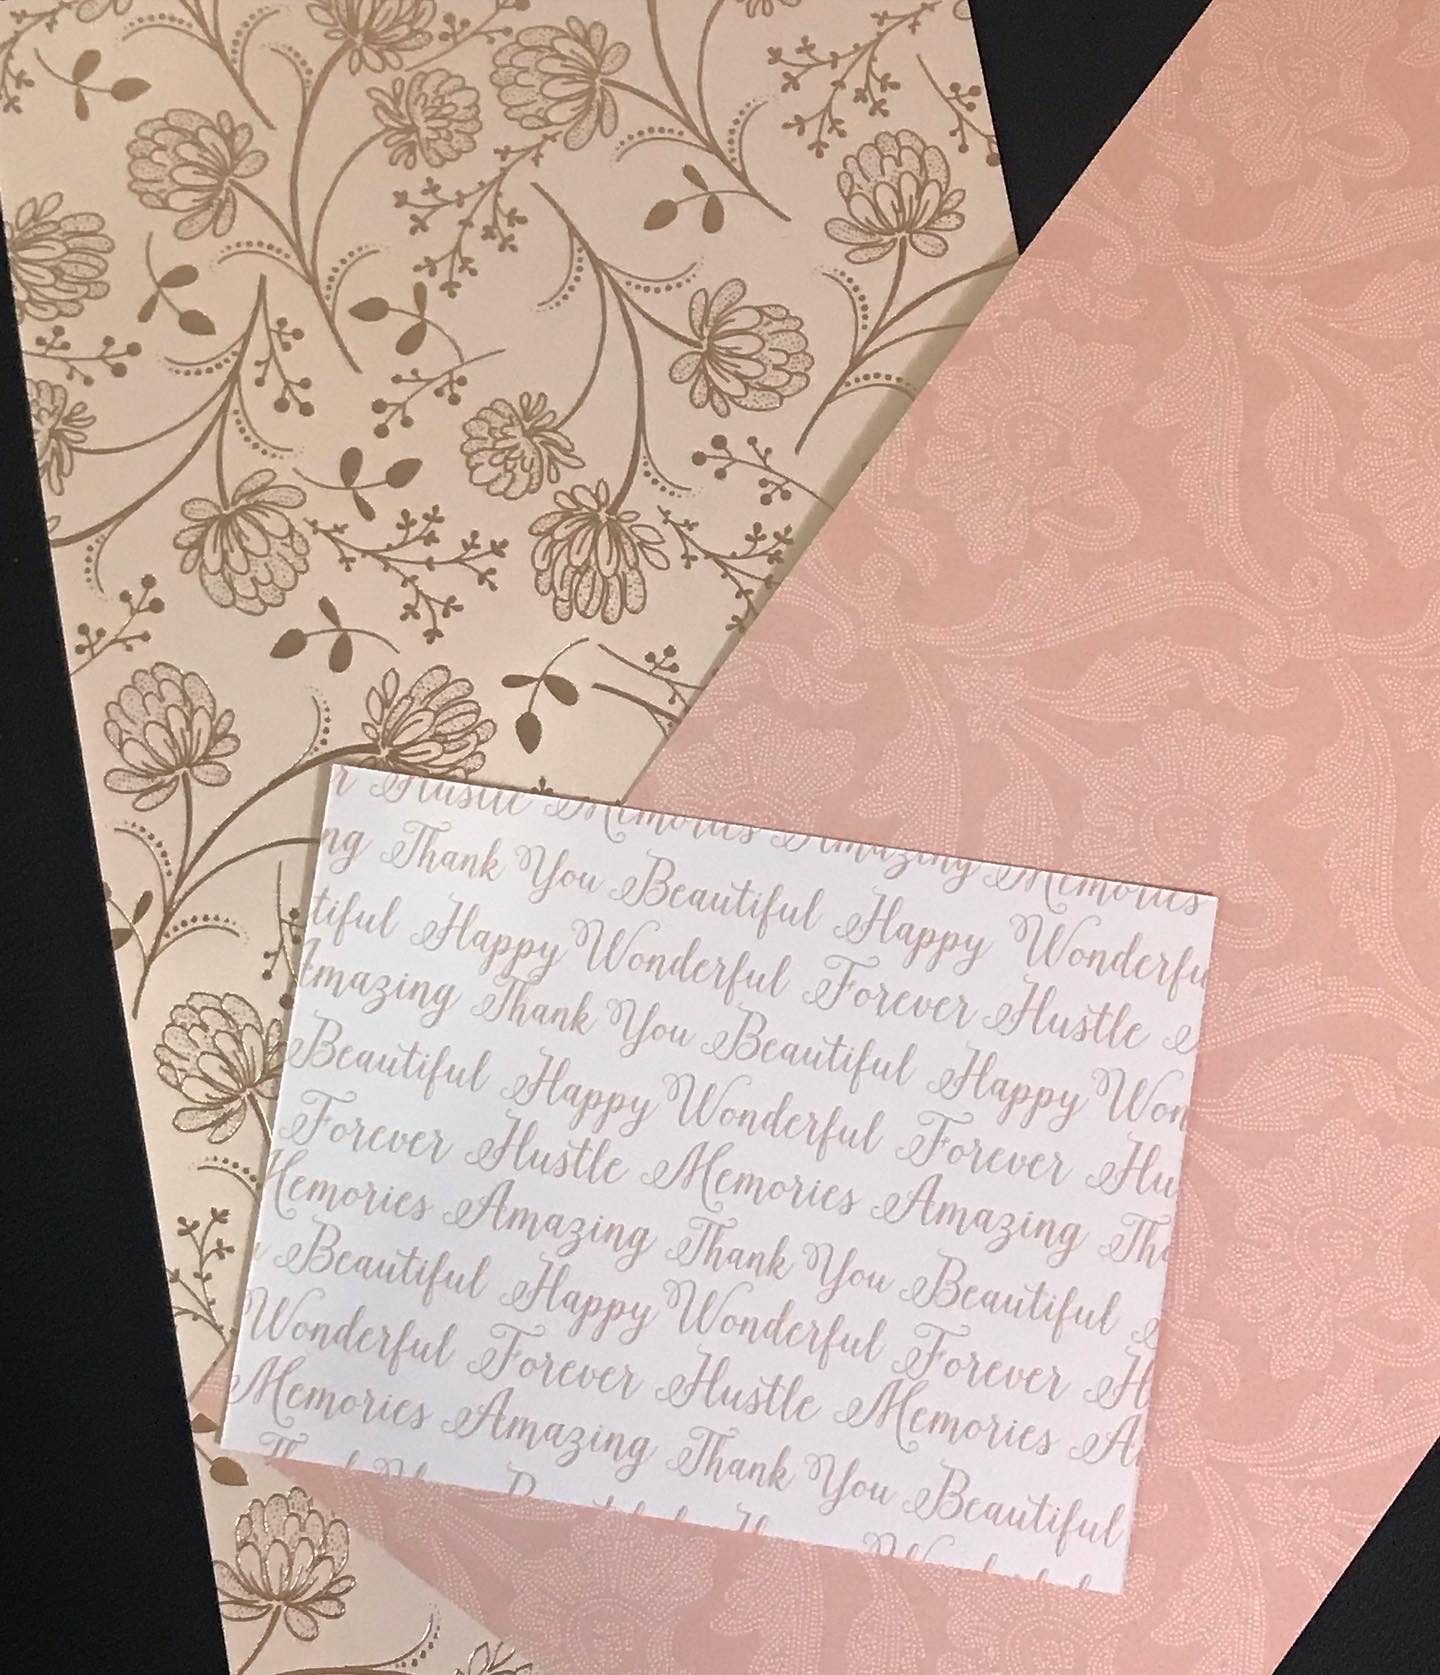 r Hustle Memories Amazing Memories
ng Thank You Beautiful Happy Wonderfu
tiful Happy Wonderful Forever Hustle
Amazing Thank You Beautiful Happy Won
Beautiful Happy Wonderful Forever Hu
Forever Hustle Memories Amazing Tha
Memories Amazing Thank You Beautiful
Beautiful Happy Wonderful Forever H
Wonderful Forever Hustle Memories A
Memories Amazing Thank You Beautiful
Thank You Beautiful